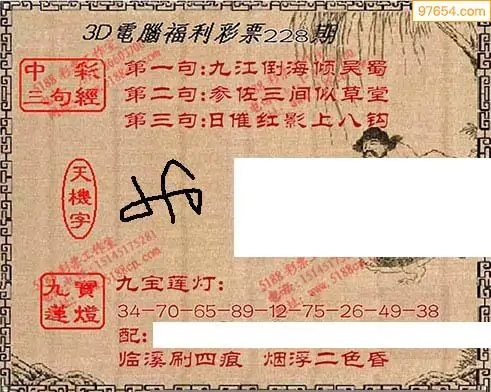 97654.com
3D電腦福利彩票228期
中彩三句經
第一句:九江倒海倾吴蜀
第二句:参佐三间似草堂
第三句:日催红影上八钩
天機字
九寶蓮燈
九宝莲灯:
34-70-65-89-12-75-26-49-38
配:
临溪刷四痕 烟浮二色昏
5188 彩票工作室
15145175281